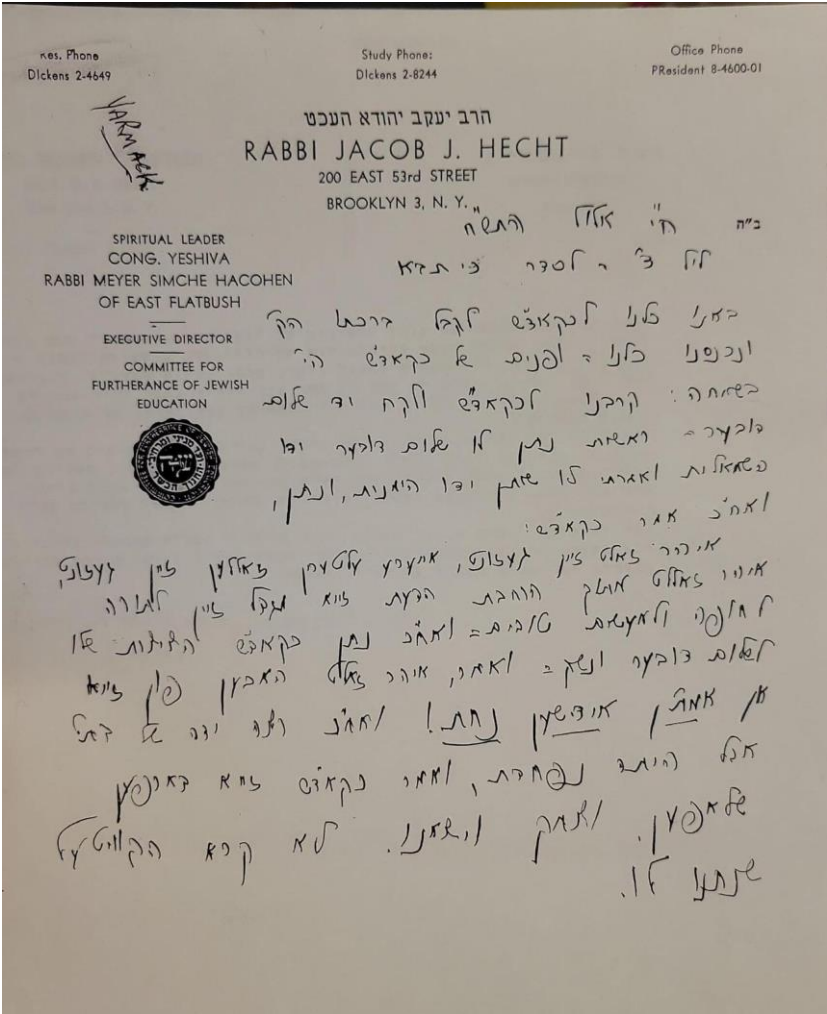 Res. Phone
DIckens 2-4649
Study Phone:
DIckens 2-8244
Office Phone
PResident 8-4600-01
YARMACK
הרב יעקב יהודא העכט
RABBI JACOB J. HECHT
200 EAST 53rd STREET
BROOKLYN 3, N. Y.
SPIRITUAL LEADER
CONG. YESHIVA
RABBI MEYER SIMCHE HACOHEN
OF EAST FLATBUSH
EXECUTIVE DIRECTOR
COMMITTEE FOR
FURTHERANCE OF JEWISH
EDUCATION
ב"ה ח"י אלול התשי"ח
ליל ד' = לסדר כי תבא
באנו כלנו לכקאד"ש לקבל ברכתו הק'
ונכנסנו כלנו = ופנים של כקאד"ש הי'
בשמחה: קרבנו לכקאד"ש ולקח יד שלום
דובער = ראשית נתן לו שלום דובער ידו
השמאלית ואמרתי לו שיתן ידו הימנית, ונתן,
ואח"כ אמר כקאד"ש:
איהר זאלט זיין געזונט, אייערע עלטערן זאללען זיין געזונט,
איהר זאללט הרחבת הדעת זייא מגדל זיין לתורה
לחופה ולמעשים טובים = ואח"כ נתן כקאד"ש שלו
לשלום דובער ונשק = ואמר, איהר זאלט האבען פון זייא
אן אמת'ן אידישען נחת! ואח"כ רצה ידה של
אבל היתה נפחדת, ואמר כקאד"ש זיא דארפען
שלאפען. וצחק ויצאנו. לא קרא הקוויטעל
שנתנו לו.